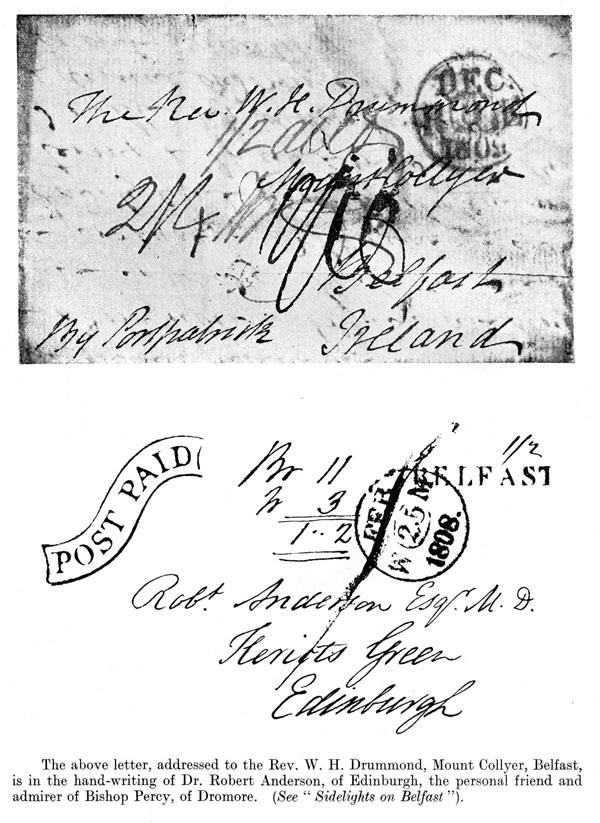 The Rev. W. H. Drummond
DEC.
1809
1/2
Mount Collyer
2/4
Belfast
By Portpatrick
Ireland
1/2
POST PAID
Br 11
BELFAST
3
1..2
FEB
W 25 M
1808.
Robt. Anderson Esqr. M. D.
Heriots Green
Edinburgh
The above letter, addressed to the Rev. W. H. Drummond, Mount Collyer, Belfast,
is in the hand-writing of Dr. Robert Anderson, of Edinburgh, the personal friend and
admirer of Bishop Percy, of Dromore. (See “ Sidelights on Belfast ”).